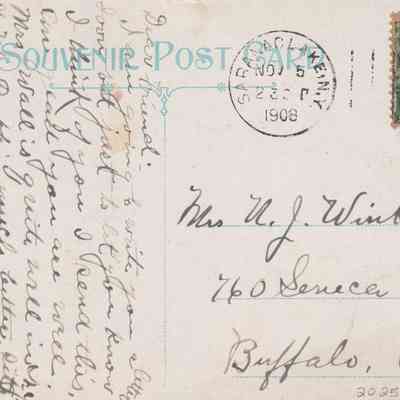 SOUVENIR POST CARD
SARANAC LAKE, N.Y.
NOV 5
2 30 P
1908
Dear Friend:
I am going to write you a letter
soon but just to let you know
I think of you I send this.
am glad you are well.
Mrs Wall is quite well now
much better
Mrs N. J. Wint
760 Seneca
Buffalo,
2025